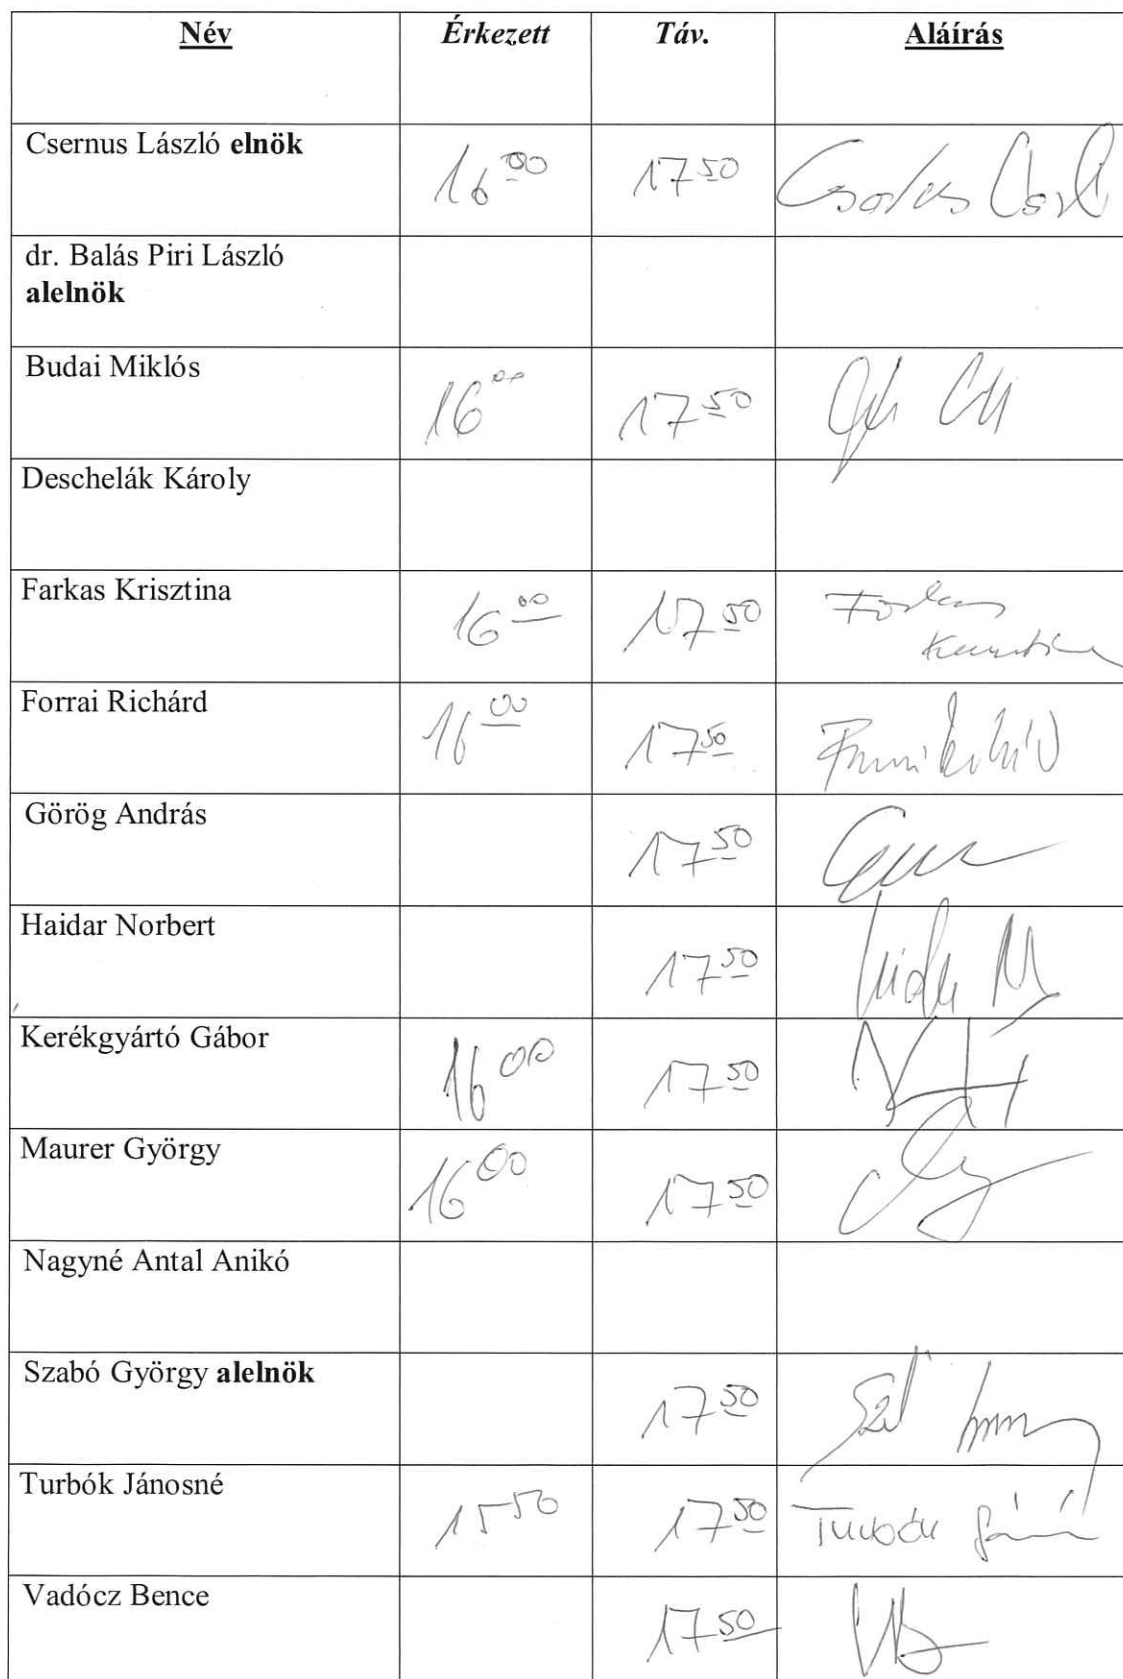 Név Érkezett Táv. Aláírás
Csernus László elnök 16 00 17 50
dr. Balás Piri László
alelnök
Budai Miklós 16 00 17 50
Deschelák Károly
Farkas Krisztina 16 00 17 50 Farkas
Krisztina
Forrai Richárd 16 00 17 50
Görög András 17 50
Haidar Norbert 17 50
Kerékgyártó Gábor 16 00 17 50
Maurer György 16 00 17 50
Nagyné Antal Anikó
Szabó György alelnök 17 50
Turbók Jánosné 15 50 17 50 Turbók
Vadócz Bence 17 50